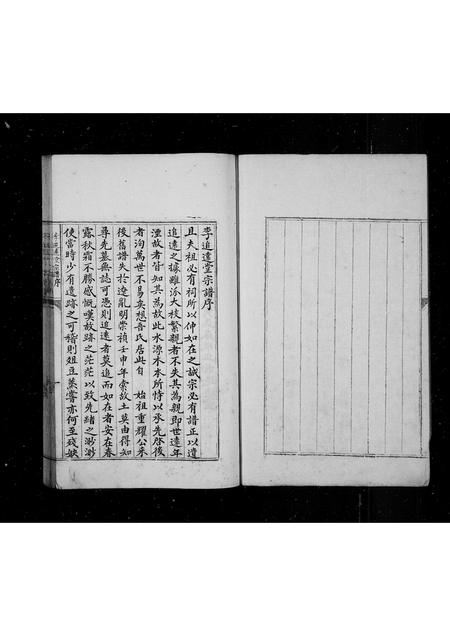 李追遠堂宗譜序
且夫祖必有祠所以伸如在之誠宗必有譜正以遺
追遠之據雖派大枝繁親者不失其為親即世遠年
湮故者皆知其為故此水源木本所恃以承先啓後
者洵萬世不易矣想吾氏居此自 始祖重耀公來
後舊譜失於遼亂明崇禎壬申年索故土莫由得知
尊先墓無誌可憑則追遠者莫追而如在者安在春
露秋霜不勝感慨嘆故跡之茫茫以致先緒之渺渺
使當時少有遺跡之可稽則俎豆蒸嘗亦何至殘缺
序
一